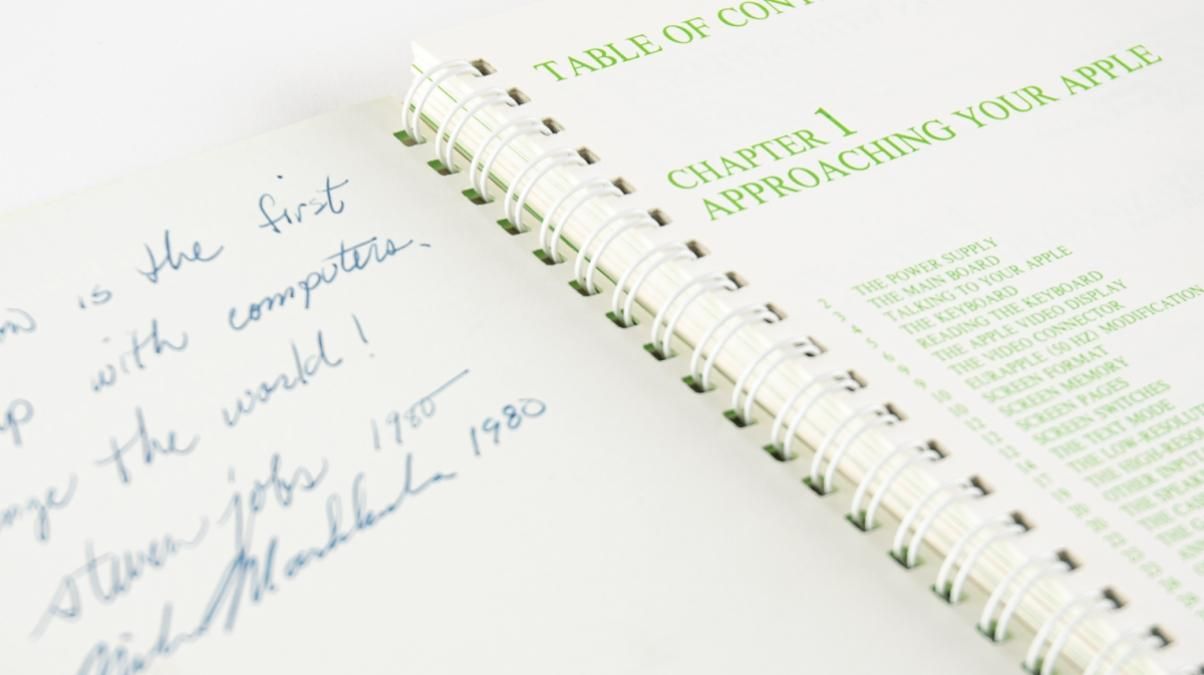 is the first
with computers.
the world!
steven jobs 1980
1980
TABLE OF CONT
CHAPTER 1
APPROACHING YOUR APPLE
2 THE POWER SUPPLY
3 THE MAIN BOARD
4 TALKING TO YOUR APPLE
5 THE KEYBOARD
6 READING THE KEYBOARD
9 THE APPLE VIDEO DISPLAY
9 THE VIDEO CONNECTOR
10 EURAPPLE (50 HZ) MODIFICATION
10 SCREEN FORMAT
12 SCREEN MEMORY
12 SCREEN PAGES
12 SCREEN SWITCHES
14 THE TEXT MODE
17 THE LOW-RESOLU
19 THE HIGH-RESO
20 OTHER INPU
20 THE SPEA
22 THE CA